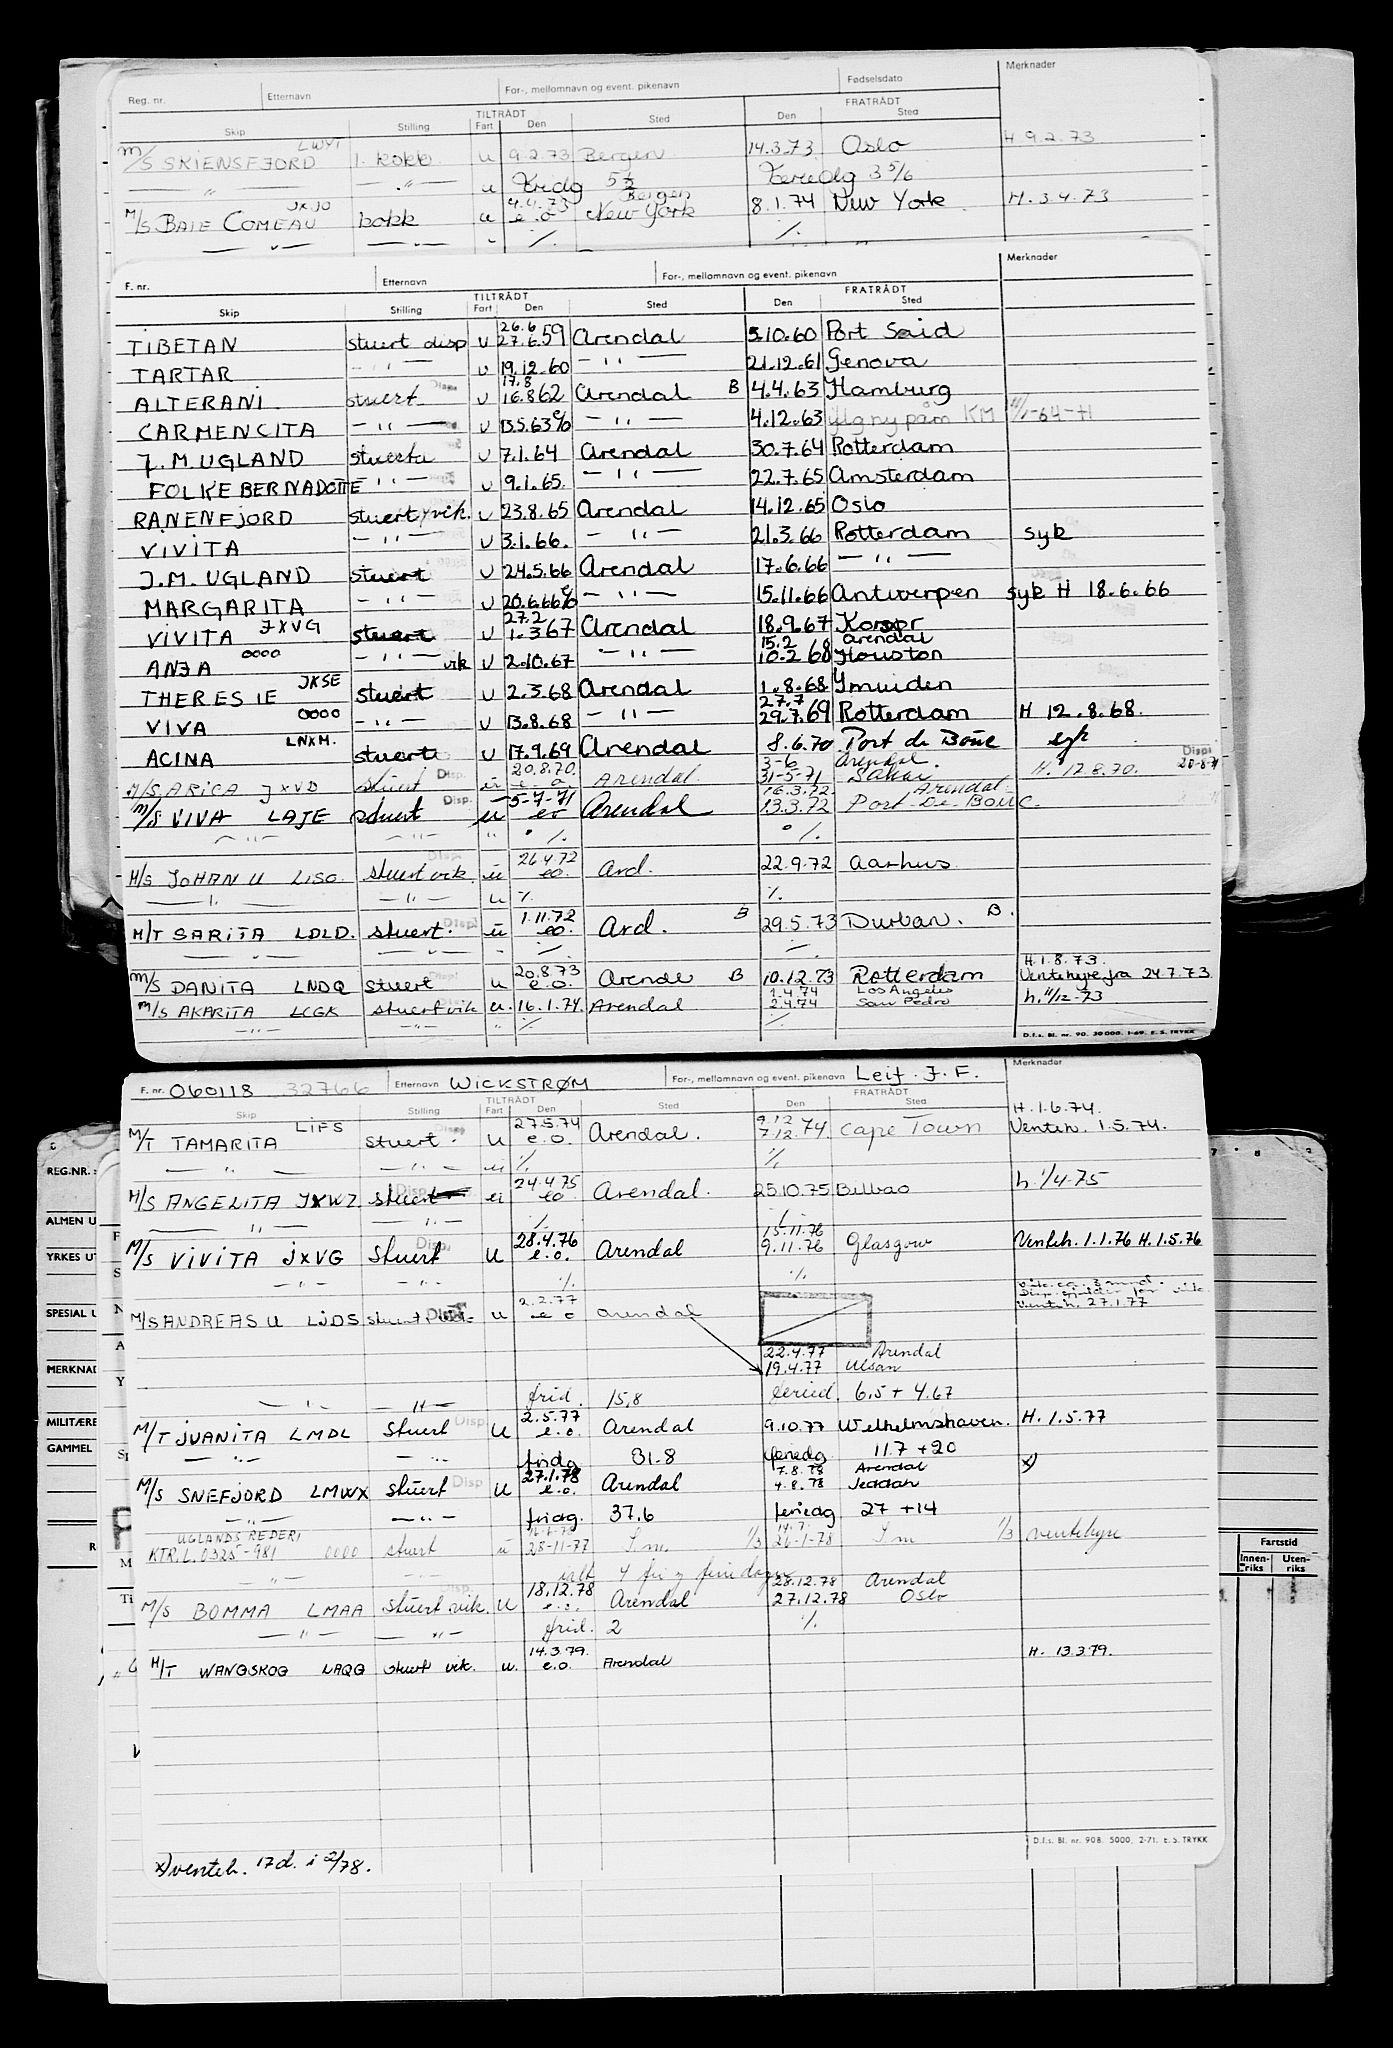 Reg. nr. Etternavn For-, mellomnavn og event. pikenavn Fødselsdato Merknader
TILTRÅDT FRATRÅDT
Skip Stilling Fart Den Sted Den Sted
M/S SKIENSFJORD LWYT 1. kokk u 9.2.73 Bergen 14.3.73 Oslo H 9.2.73
— " — — " — u Fridg 5½ Feriedg 3 5/6
M/S BAIE COMEAU JXJO kokk u 4.4.73 e.o Bergen New York 8.1.74 New York H. 3.4.73
— " — — " — " % %
F. nr. Etternavn For-, mellomnavn og event. pikenavn Merknader
TILTRÅDT FRATRÅDT
Skip Stilling Fart Den Sted Den Sted
TIBETAN stuert disp u 26.6 27.6.59 Arendal 5.10.60 Port Said
TARTAR — " — u 19.12.60 — " — 21.12.61 Genova
ALTERANI stuert Disp. u 17.8 16.8.62 Arendal B 4.4.63 Hamburg
CARMENCITA — " — u 13.5.63 — " — 4.12.63 KM -64-71
J.M. UGLAND stuert u 7.1.64 Arendal 30.7.64 Rotterdam
FOLKE BERNADOTTE — " — u 9.1.65. — " — 22.7.65 Amsterdam
RANENFJORD stuert vik. u 23.8.65 Arendal 14.12.65 Oslo
VIVITA — " — u 3.1.66. — " — 21.3.66 Rotterdam syk
J.M. UGLAND stuert u 24.5.66 Arendal 17.6.66 — " —
MARGARITA — " — u 20.6.66 — " — 15.11.66 Antwerpen syk H 18.6.66
VIVITA JXVG stuert u 27.2 1.3.67 Arendal 18.9.67 Korsør
ANJA 0000 — " — vik u 2.10.67 — " — 15.2 10.2.68 Arendal Houston
THERESIE JKSE stuert u 2.3.68 Arendal 1.8.68 Ymuiden
VIVA 0000 — " — u 13.8.68 — " — 27.7 29.7.69 Rotterdam H 12.8.68.
ACINA LNXM. stuert u 17.9.69 Arendal 8.6.70 Port de Bouc syk
M/S ARICA JXVD stuert Disp. u 20.8.70. e.o Arendal 3-6 31-5-71 Arendal. Dakar H. 17.8.70. Disp 20-8-71
M/S VIVA LAJE stuert Disp. u 5-7-71 eo Arendal 16.3.72 13.3.72 Arendal Port-De-Bouc.
— " — — " — " % %
M/S JOHAN U LISO. stuert vik. Disp. u 26.4.72 eo. Ard. 22.9.72 Aarhus
— " — — " — u % %
M/T SARITA LDLD. stuert. Disp u 1.11.72 eo. Ard. B 29.5.73 Durban. B.
— " — — " — % %
M/S DANITA LNDQ stuert u 20.8.73 e.o. Arendal B 10.12.73 Rotterdam H.1.8.73. Ventehyre fra 24.7.73
M/S AKARITA LCGK stuert vik u. 16.1.74. Arendal 1.4.74 2.4.74 Los Angeles San Pedro h. 11/12-73
— " — — " — " % %
D.f.s. Bl. nr. 90. 30 000. 1-69. E. S. TRYKK
F. nr. 060118 32766 Etternavn WICKSTRØM For-, mellomnavn og event. pikenavn Leif. J. F. Merknader
TILTRÅDT FRATRÅDT
Skip Stilling Fart Den Sted Den Sted
M/T TAMARITA LIFS stuert. u 27.5.74 e.o. Arendal. 9.12 7.12.74. Cape Town H. 1.6.74. Venteh. 1.5.74.
— " — — " — u % %
M/S ANGELITA JXWZ stuert u 24.4.75 eo Arendal. 25.10.75 Bilbao h. 1/4-75
— " — — " — % %
M/S VIVITA JXVG Stuert Disp. u 28.4.76 e.o. Arendal 15.11.76 9.11.76 Glasgow Venteh. 1.1.76 H.1.5.76
— " — — " — % %
M/S ANDREAS U LJDS stuert u 2.2.77 e o Arendal venteh. 27.1.77
22.4.77 Arendal
19.4.77 Ulsan
— " — — " — frid. 15,8 feried. 6,5 + 4.67
M/T JUANITA LMDL Stuert Disp. u 2.5.77 e.o. Arendal 9.10.77 Welhelmshaven. H. 1.5.77
— " — — " — fridg 31.8 feriedg 11.7 + 20
M/S SNEFJORD LMWX stuert Disp u 27.1.78 e.o. Arendal 7.8.78 4.8.78 Arendal Jeddah x)
— " — — " — fridg. 37.6 feriedg 27 + 14
UGLANDS REDERI KTR.L.0325-981 0000 stuert u 28-11-77 1/3 26-1-78 1/3 ventehyre
— " — — " — 4 fri og feriedager
M/S BOMMA LMAA stuert vik. u 18.12.78 e.o. Arendal 28.12.78 27.12.78 Arendal Oslo
— " — — " — frid. 2 %
M/T WANGSKOG LAQG stuert vik. u. 14.3.79. e.o. Arendal H. 13.3.79.
D.f.s. Bl. nr. 908. 5000. 2-71. E. S. TRYKK
x) venteh. 17d. i 2/78.
REG.NR.:
ALMEN U
YRKES UT
SPESIAL U
MERKNAD
MILITÆRE
GAMMEL
Fartstid
Innen-riks Uten-riks